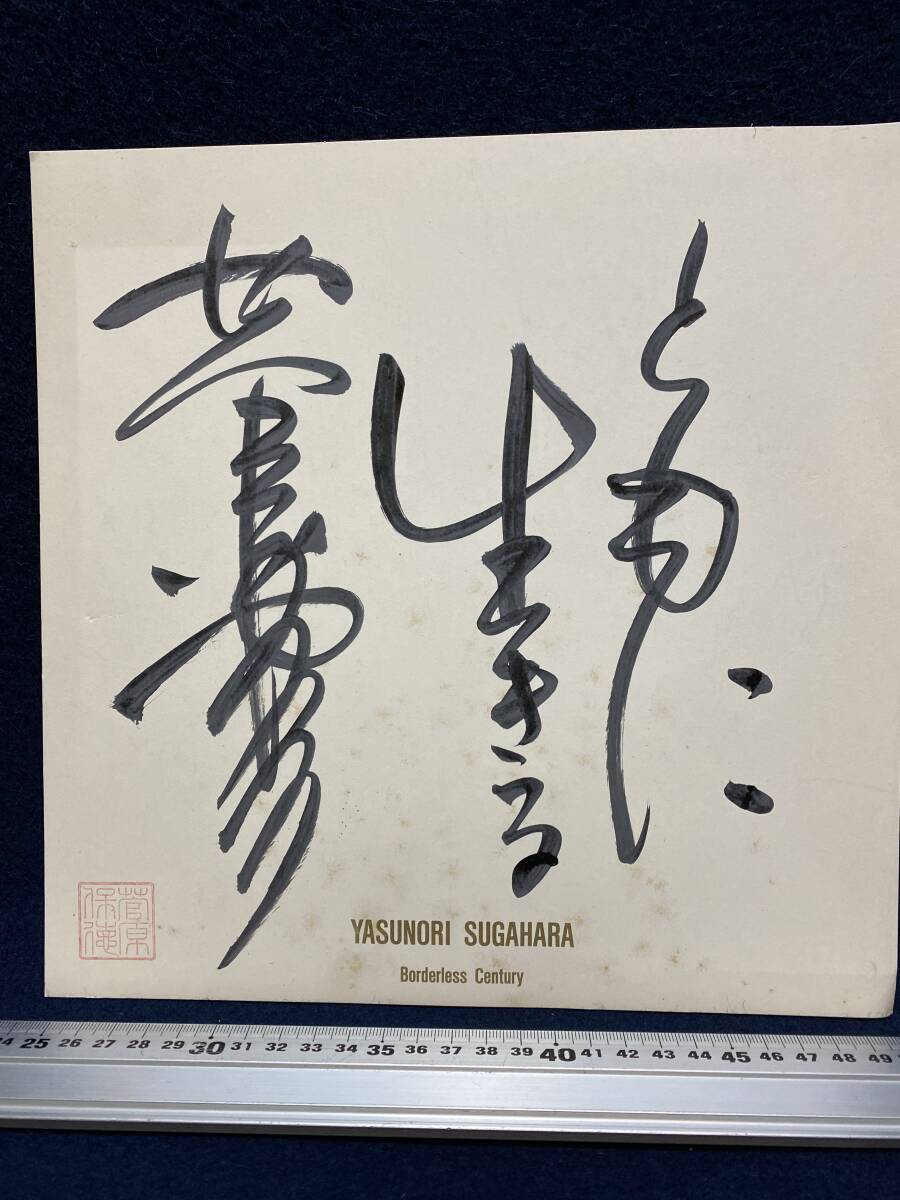 ともに
生きる
菅原
保徳
YASUNORI SUGAHARA
Borderless Century
24 25 26 27 28 29 30 31 32 33 34 35 36 37 38 39 40 41 42 43 44 45 46 47 48 49